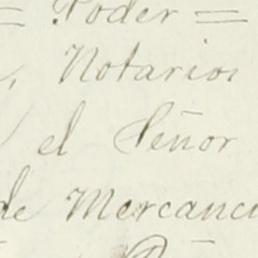 = Poder =
, Notarios
el Señor
de Mercanci